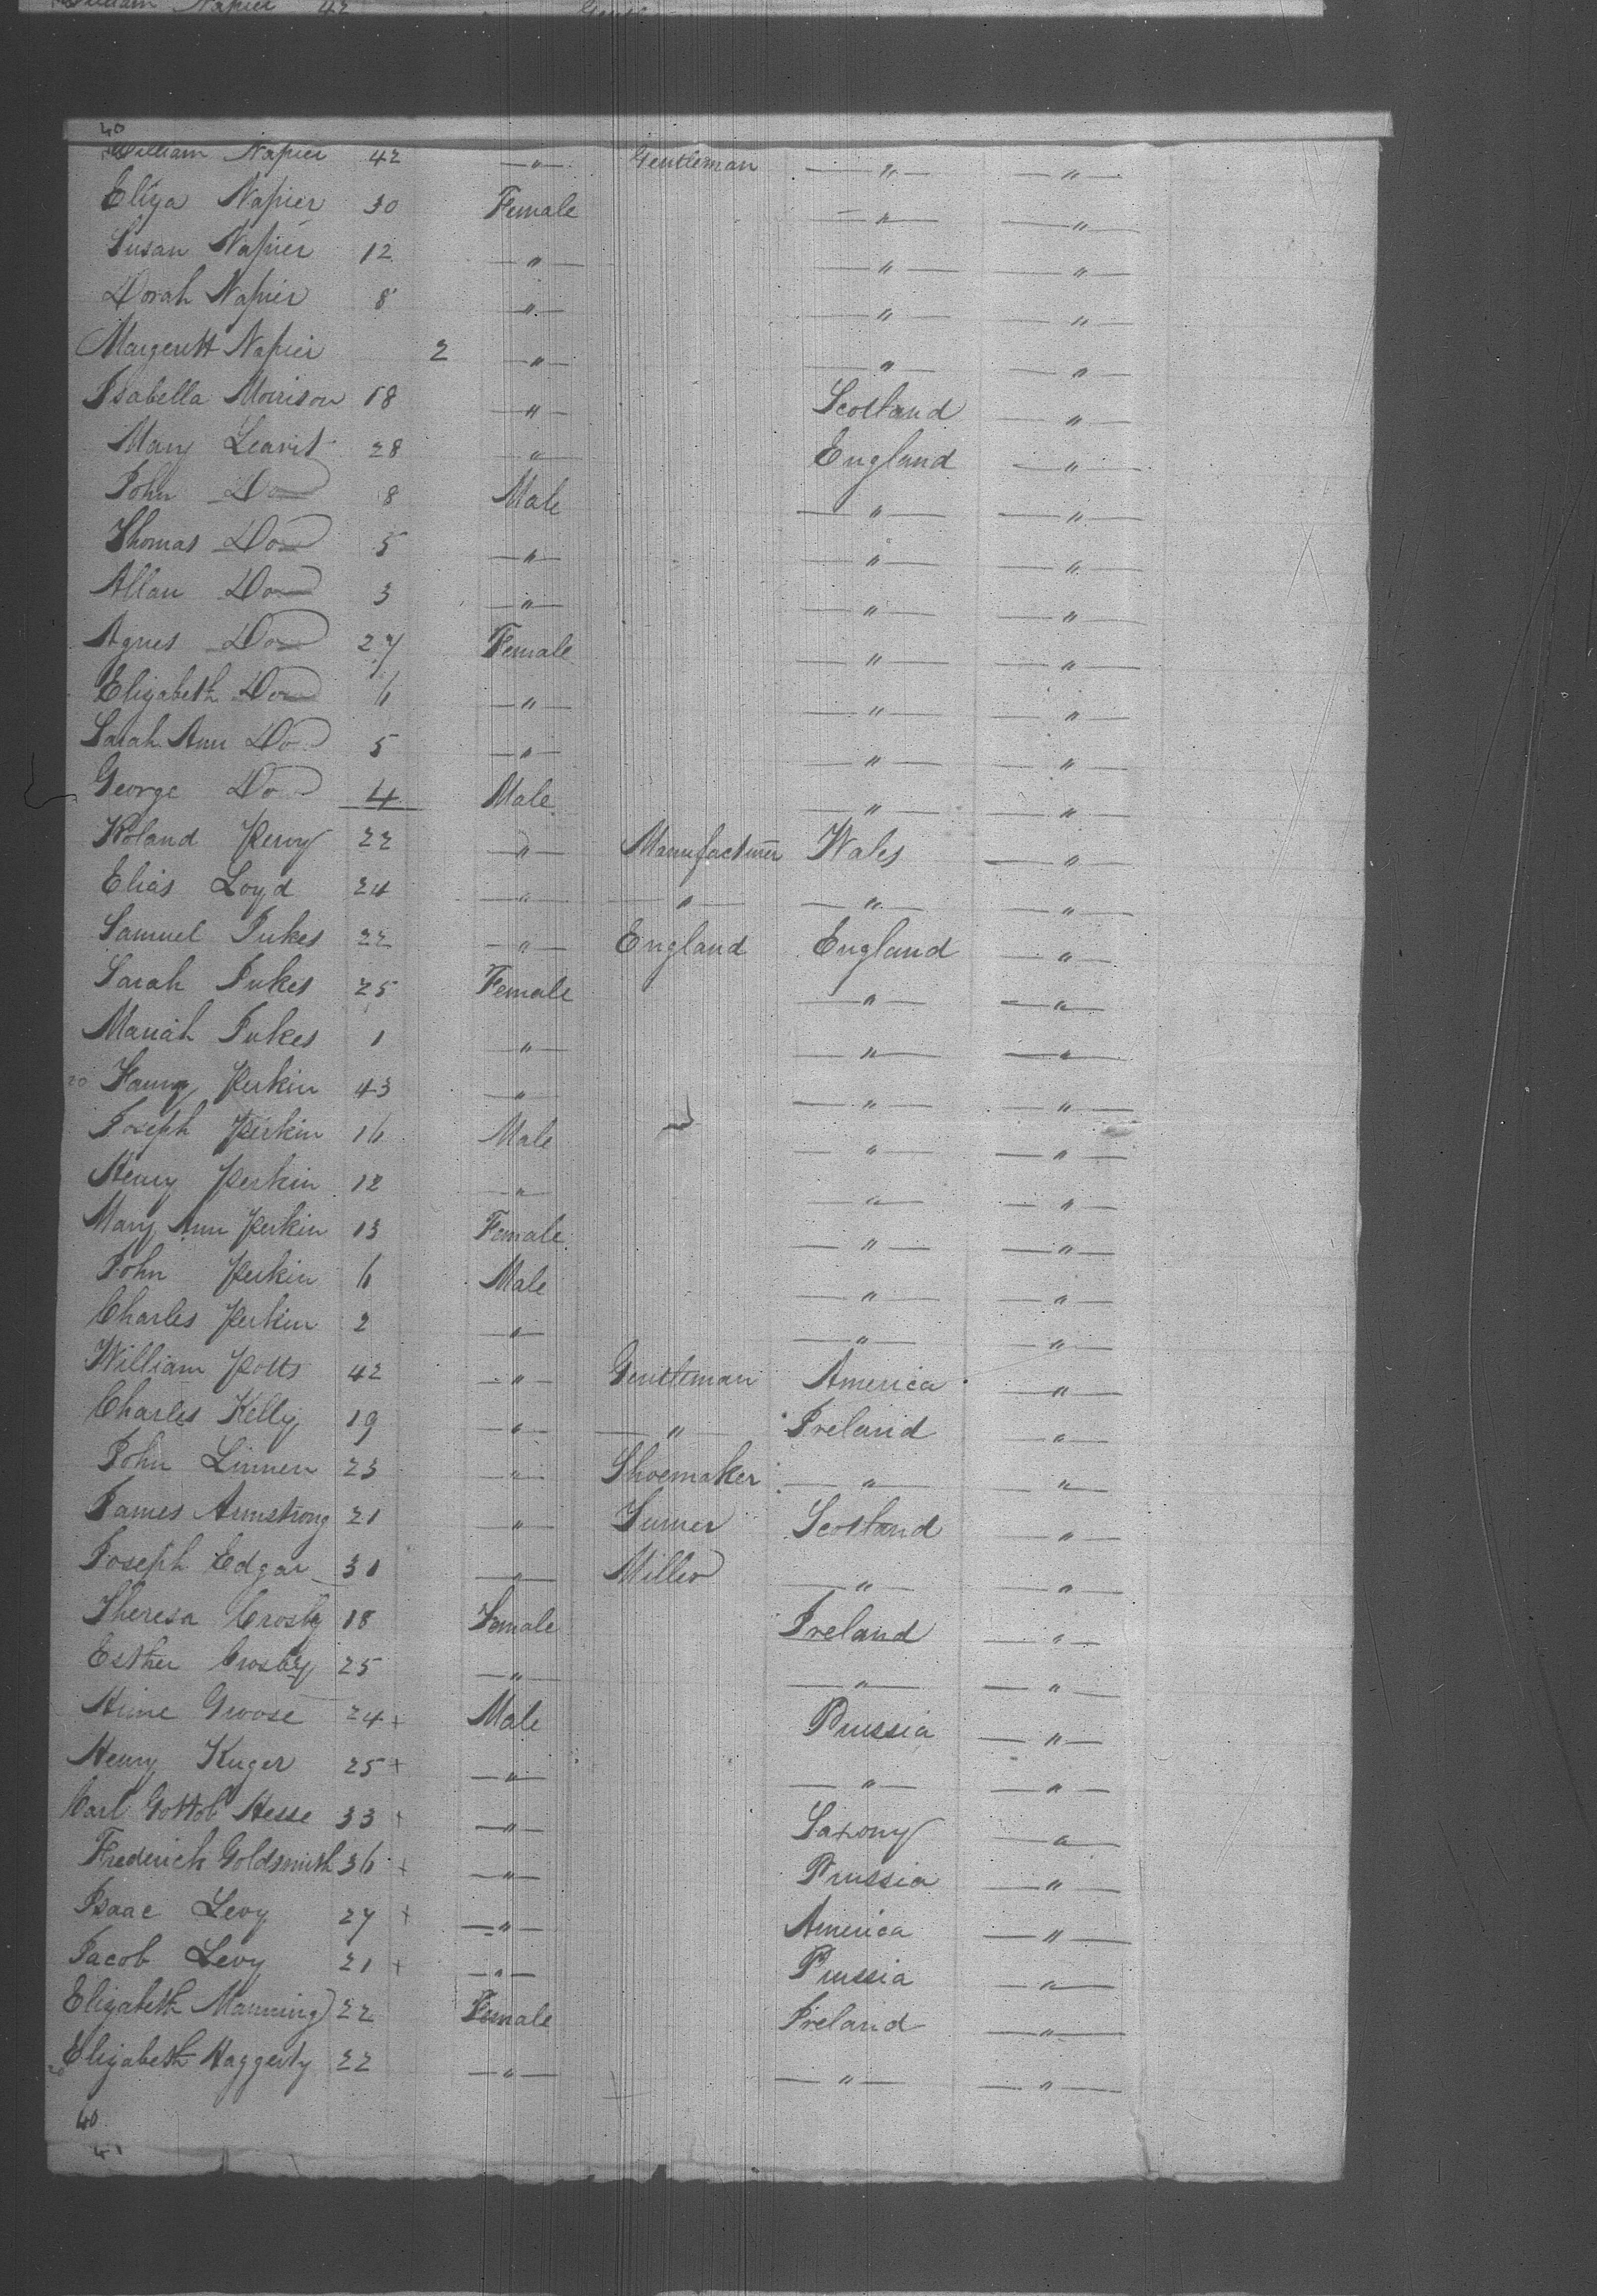 William Napier 42 Gentle
40
William Napier 42 — " — Gentleman — " — — " —
Eliza Napier 30 Female — " — — " —
Susan Napier 12 — " — — " — — " —
Dorah Napier 8 — " — — " — — " —
Margerett Napier 2 — " — — " — — " —
Isabella Morrison 18 — " — Scotland — " —
Mary Leavit 28 — " — England — " —
John Do 8 Male — " — — " —
Thomas Do 5 — " — — " — — " —
Allan Do 3 — " — — " — — " —
Agnes Do 27 Female — " — — " —
Elizabeth Do 6 — " — — " — — " —
Sarah Ann Do 5 — " — — " — — " —
George Do 4 Male — " — — " —
Roland Perry 22 — " — Manufacturer Wales — " —
Elias Loyd 24 — " — — " — — " — — " —
Samuel Jukes 22 — " — England England — " —
Sarah Jukes 25 Female — " — — " —
Mariah Jukes 1 — " — — " — — " —
20 Fanny Perkin 43 — " — — " — — " —
Joseph Perkin 16 Male — " — — " —
Henry Perkin 12 — " — — " — — " —
Mary Ann Perkin 13 Female — " — — " —
John Perkin 6 Male — " — — " —
Charles Perkin 2 — " — — " — — " —
William Potts 42 — " — Gentleman America — " —
Charles Kelly 19 — " — — " — Ireland — " —
John Linnen 23 — " — Shoemaker — " — — " —
James Armstrong 21 — " — Scotland — " —
Joseph Edgar 31 — " — Miller — " — — " —
Theresa Crosby 18 Female Ireland — " —
Esther Crosby 25 — " — — " — — " —
Groose 24 + Male Prussia — " —
Henry Kuger 25 + — " — — " — — " —
Carl Gottob Hesse 33 + — " — Saxony — " —
Frederick Goldsmith 36 + — " — Prussia — " —
Isaac Levy 27 + — " — America — " —
Jacob Levy 21 + — " — Prussia — " —
Elizabeth Manning 22 Female Ireland — " —
Elizabeth Haggerty 22 — " — — " — — " —
40
41